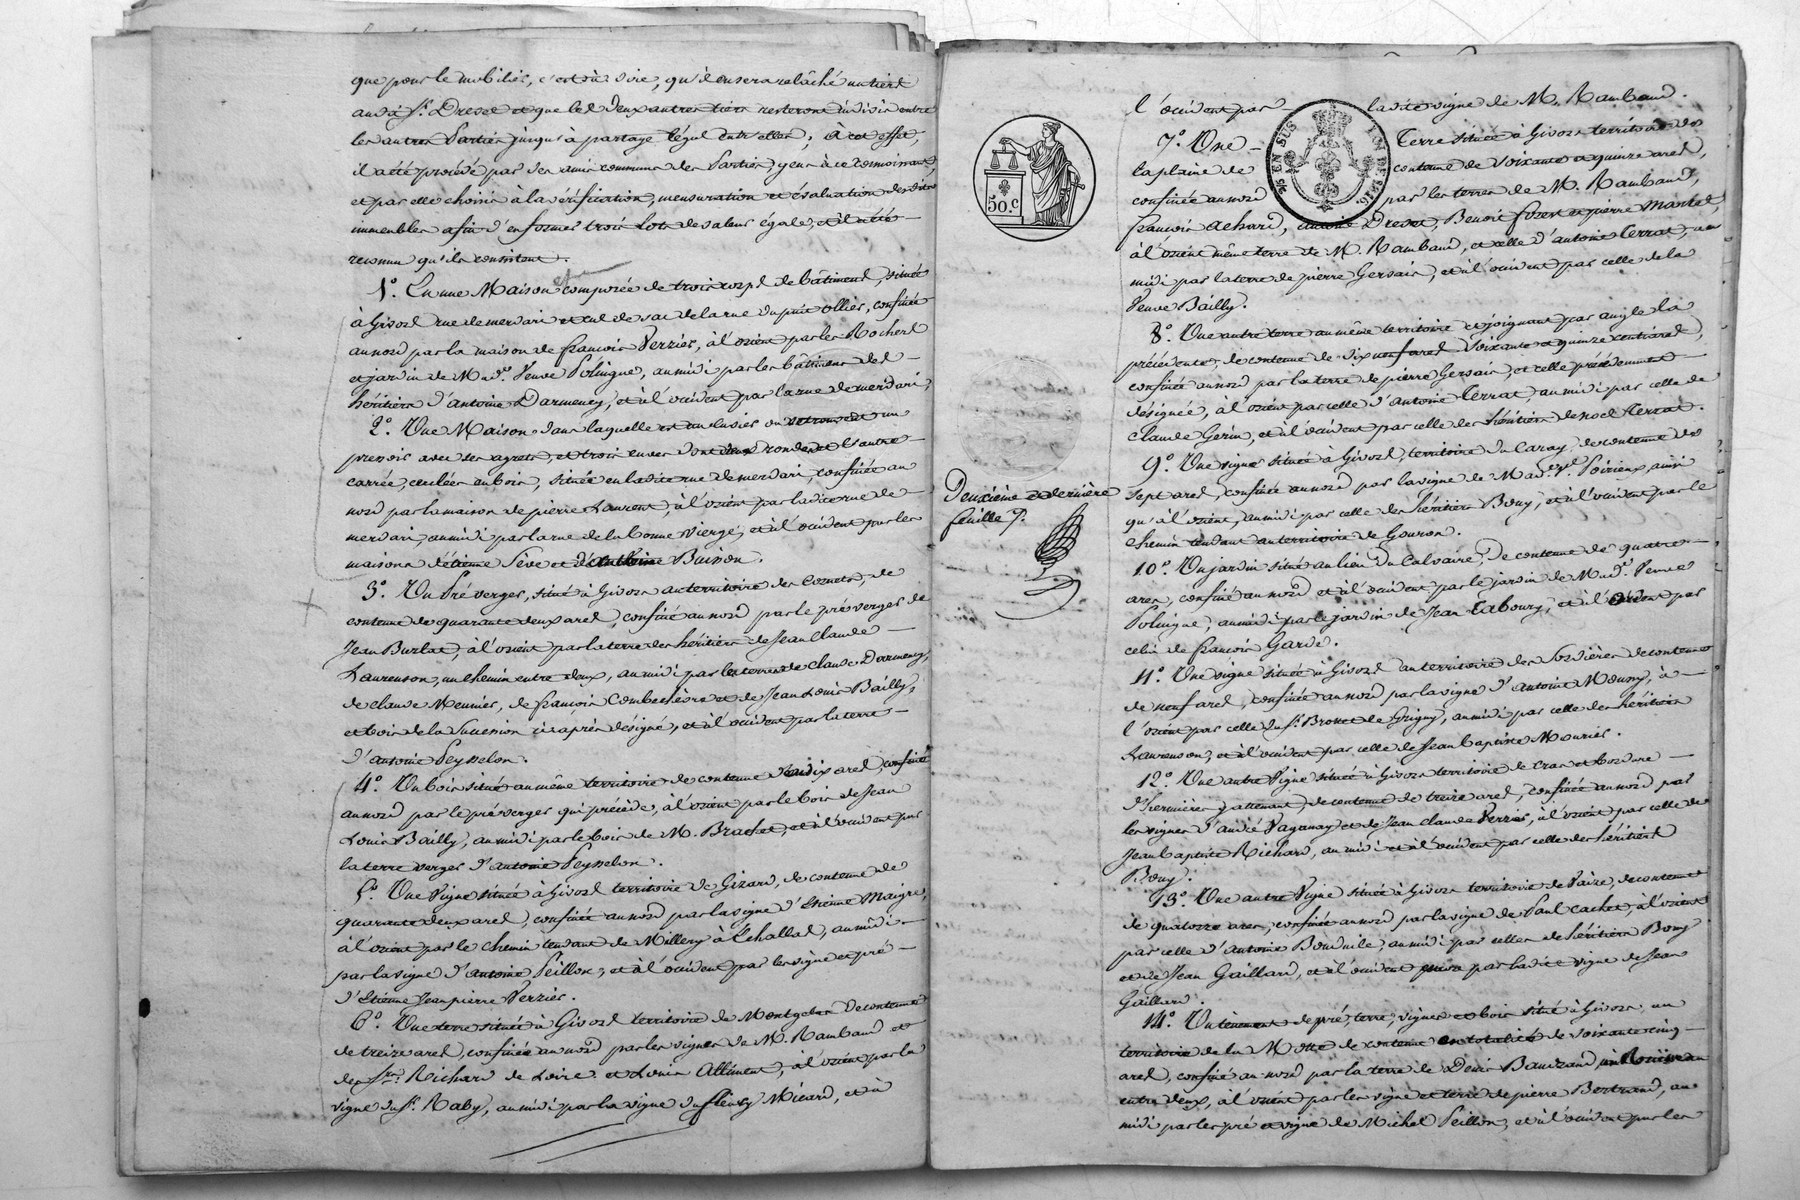 que pour le mobilier, c'est à dire, qu'il en sera relâché un tiers
aud. Sr. Drevet et que les deux autres tiers resteront indivis entre
les autres Parties jusqu'à partage légal entr'elles; à cet effet,
il a été procédé par des amis communs des Parties, gens à ce connoissant,
et par elle choisis à la vérification, mensuration et évaluation desdits
immeubles afin d'en former trois Lots de valeur égale, et il a été
reconnu qu'ils consistent.
1.° En une Maison composée de trois corps de bâtiment, située
à Givors rue de merdari et cul de sac de la rue du puit ollier, confinée
au nord par la maison de françois Verzier, à l'orient par les Rochers
et jardin de Mad.e Veuve Polingue, au midi par les bâtimens des
héritiers d'Antoine Darmency, et à l'occident par la rue de merdari;
2.° Une Maison dans laquelle est un cuvier ou se trouvent un
pressoir avec ses agrets, et trois cuves dont deux rondes et l'autre
carrée, cerclées en bois, située en ladite rue de merdari, confinée au
nord par la maison de pierre Laurent, à l'orient par ladite rue de
merdari, au midi par la rue de la bonne vierge, et à l'occident par les
maisons d'étienne Sève et d'Antoine Buisson.
3.° Un Pré verger, situé à Givors au territoire des Cornets, de
contenue de quarante deux ares, confiné au nord par le pré verger de
Jean Burlat, à l'orient par la terre des héritiers de Jean Claude
Laurenson, un chemin entre deux, au midi par les terres de claude Darmency,
de claude Meunier, de françois Combechèvre et de Jean Louis Bailly,
et bois de la Succession ci après désigné, et à l'occident par la terre
d'antoine Peysselon.
4.° Un bois situé au même territoire de contenue de dix ares, confiné
au nord par le pré verger qui précède, à l'orient par le bois de Jean
Louis Bailly, au midi par le bois de M. Brachet, et à l'occident par
la terre verger d'antoine Peysselon.
5.° Une Vigne située à Givors territoire de Gizard, de contenue de
quarante deux ares, confinée au nord par la vigne d'Etienne Maigre,
à l'orient par le chemin tendant de Millery à Echallas, au midi
par la vigne d'antoine Peillon, et à l'occident par les vigne et pré
d'Etienne Jean pierre Verzier.
6.° Une terre située à Givors territoire de Montgelas de contenue
de treize ares, confinée au nord par les vignes de M. Rambaud et
des Srs. Richard de Loire et Louis Alliment, à l'orient par la
vigne du Sr. Raby, au midi par la vigne du fleury Micard, et à
l'occident par ladite vigne de M. Rambaud.
7.° Une Terre située à Givors territoire de
la plaine de contenue de Soixante et quinze ares,
confinée au nord par les terres de M. Rambaud,
françois Achard, antoine Drevet, Benoit forest et pierre Martel,
à l'orient même terre de M. Rambaud, et celle d'antoine Terrat, au
midi par la terre de pierre Gervais, et à l'occident par celle de la
Veuve Bailly.
8.° Une autre terre au même territoire et joignant par angle la
précédente, de contenue de dix neuf ares Soixante et quinze centiares,
confinée au nord par la terre de pierre Gervais, et celle précédemment
désignée, à l'orient par celle d'Antoine Terrat, au midi par celle de
Claude Gerin, et à l'occident par celle des héritiers de noel Terrat.
9.° Une vigne située à Givors, territoire du Caray, de contenue de
sept ares, confinée au nord par la vigne de Mad.e Ve. Poirieux, ainsi
qu'à l'orient, au midi par celle des héritiers Bouy, et à l'occident par le
chemin tendant au territoire de Gouron.
10.° Un jardin situé au lieu du Calvaire, de contenue de quatre
ares, confiné au nord et à l'occident par le jardin de Mad.e Veuve
Polingue, au midi par le jardin de Jean Taboury, et à l'orient par
celui de françois Garde.
11.° Une vigne située à Givors au territoire des Sordières de contenue
de neuf ares, confinée au nord par la vigne d'antoine Mouny, à
l'orient par celle du Sr. Brosse de Grigny, au midi par celle des héritiers
Laurenson, et à l'occident par celle de Jean Baptiste Mourier.
12.° Une autre Vigne située à Givors territoire de cras et bordure
d'hermières y attenant, de contenue de treize ares, confinée au nord par
les vignes d'André Paganay et de Jean claude Verzier, à l'orient par celle de
Jean Baptiste Richard, au midi et à l'occident par celle des héritiers
Bouy.
13.° Une autre Vigne située à Givors territoire de Vaize, de contenue
de quatorze ares, confinée au nord par la vigne de Paul Cachet, à l'orient
par celle d'Antoine Bonduile, au midi par celles des héritiers Bouy
et de Jean Gaillard, et à l'occident par ladite vigne de Jean
Gaillard.
14.° Un tenement de pré, terre, vignes et bois situé à Givors, au
territoire de la Motte de contenue en totalité de soixante cinq
ares, confiné au nord par la terre de Denis Baudrand un Ruisseau
entre deux, à l'orient par les vigne et terre de pierre Bertrand, au
midi par les pré et vigne de Michel Peillon, et à l'occident par les
Deuxième et dernière
feuille
50.c
EN SUS